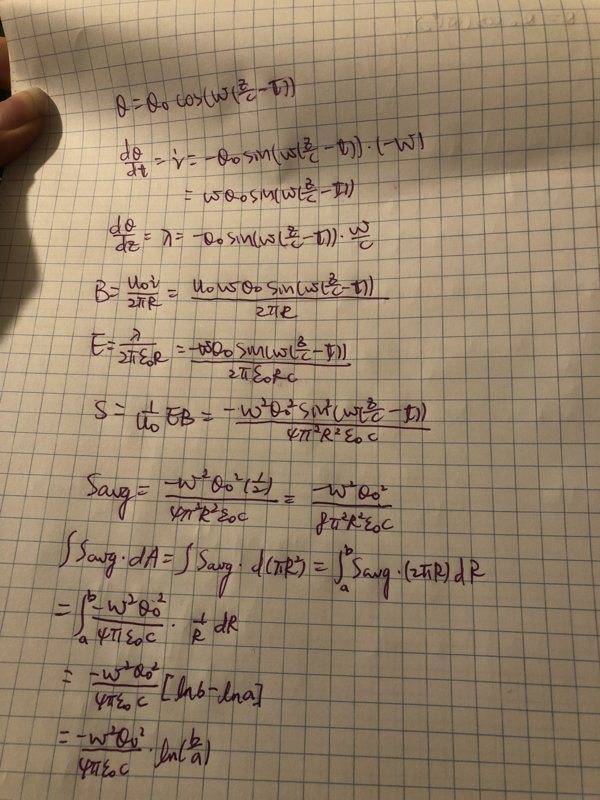 θ = θ₀ cos(w(z/c - t))
dθ/dt = i = -θ₀ sin(w(z/c - t)) · (-w)
= wθ₀ sin(w(z/c - t))
dθ/dz = λ = -θ₀ sin(w(z/c - t)) · w/c
B = u₀i/2πR = u₀wθ₀ sin(w(z/c - t))/2πR
E = λ/2πε₀R = -wθ₀ sin(w(z/c - t))/2πε₀Rc
S = 1/u₀ EB = -w²θ₀² sin²(w(z/c - t))/4π²R²ε₀c
Savg = -w²θ₀²(1/2)/4π²R²ε₀c = -w²θ₀²/8π²R²ε₀c
∫Savg · dA = ∫Savg · d(πR²) = ∫ₐᵇ Savg · (2πR) dR
= ∫ₐᵇ -w²θ₀²/4πε₀c · 1/R dR
= -w²θ₀²/4πε₀c [lnb - lna]
= -w²θ₀²/4πε₀c · ln(b/a)